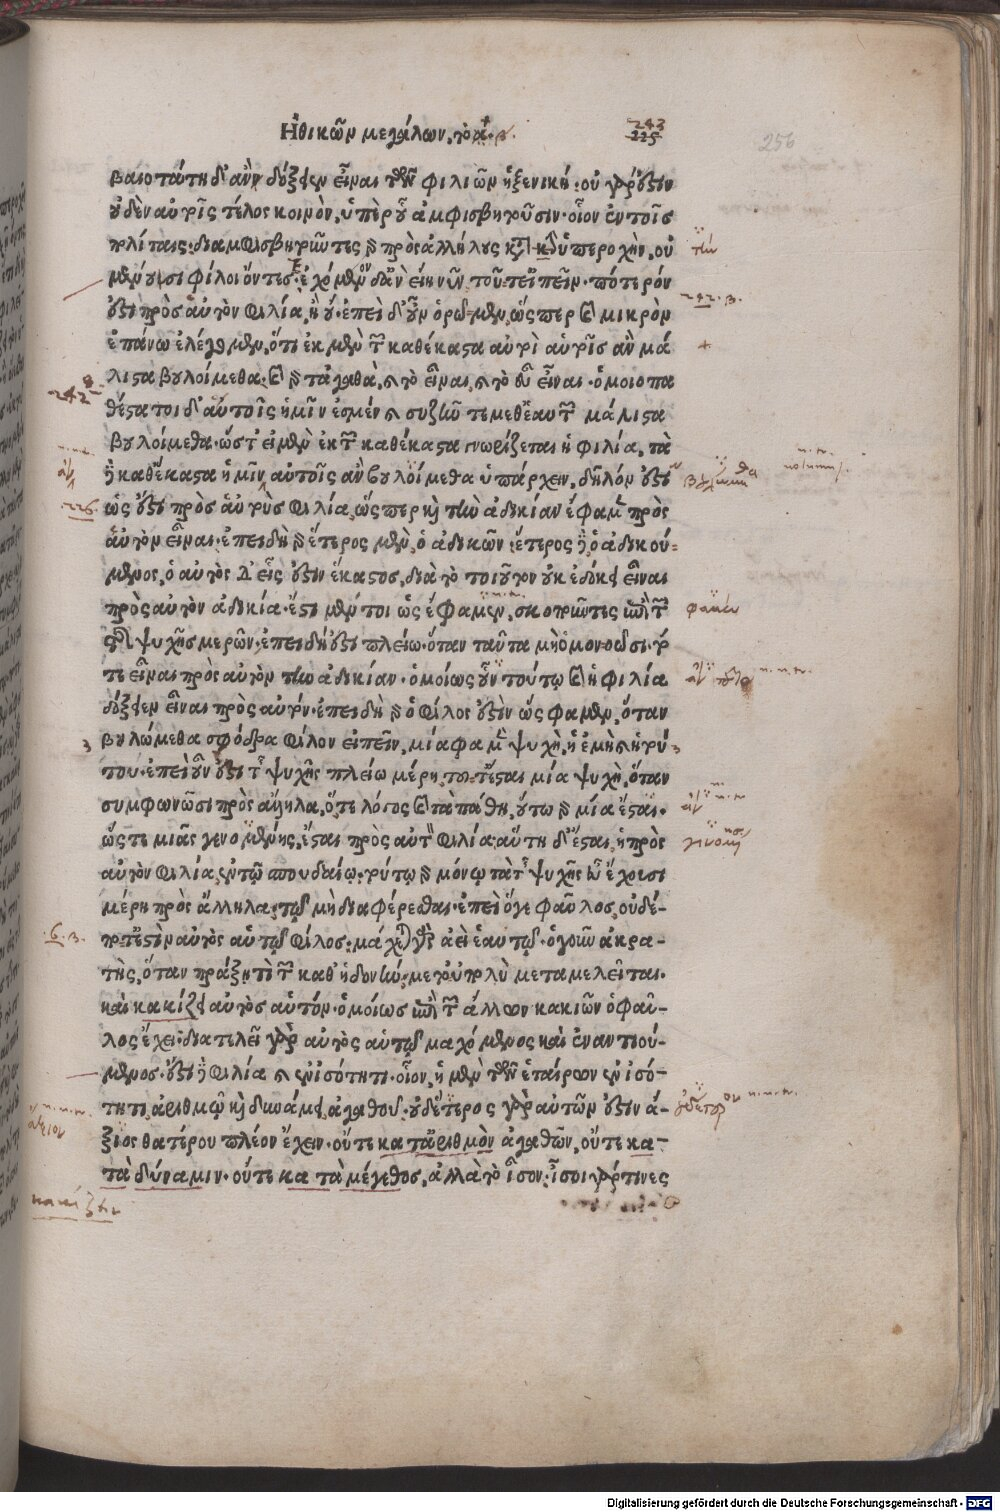 Ἠθικῶν μεγάλων, τὸ α. β.
243
225
256
βαιοτάτη δ' ἂν δόξειεν εἶναι τῶν φιλιῶν ἡ ξενική· οὐ γάρ ἐστιν
οὐδὲν αὐτοῖς τέλος κοινὸν, ὑπὲρ οὗ ἀμφισβητοῦσιν· οἷον ἐν τοῖς
πολίταις· διαμφισβητοῦντες γὰρ πρὸς ἀλλήλους κατὰ καὶ ὑπεροχὴν, οὐ
μένουσι φίλοι ὄντες· ἐχόμενον δ' ἂν εἴη νῦν τοῦτ' εἰπεῖν· πότερόν
ἐστι πρὸς αὐτὸν φιλία, ἢ οὔ· ἐπεὶ δ' οὖν ὁρῶμεν, ὥσπερ καὶ μικρὸν
ἐπάνω ἐλέγομεν, ὅτι ἐκ μὲν τῶν καθέκαστα αὐτοὶ αὑτοῖς ἂν μά
λιστα βουλοίμεθα· καὶ γὰρ τἀγαθὰ, καὶ τὸ εἶναι, καὶ τὸ εὖ εἶναι· ὁμοιοπα
θέστατοι δ' αὑτοῖς ἡμῖν ἐσμέν καὶ συζῆν τε μεθ' ἑαυτῶν μάλιστα
βουλοίμεθα· ὥστ' εἰ μὲν ἐκ τῶν καθέκαστα γνωρίζεται ἡ φιλία, τὰ
δὲ καθέκαστα ἡμῖν αὐτοῖς ἂν βουλοίμεθα ὑπάρχειν, δῆλόν ἐστιν
ὡς ἔστι πρὸς αὑτοὺς φιλία, ὥσπερ καὶ τὴν ἀδικίαν ἔφαμεν πρὸς
αὑτὸν εἶναι· ἐπειδὴ γὰρ ἕτερος μὲν, ὁ ἀδικῶν· ἕτερος δὲ, ὁ ἀδικού-
μενος, ὁ αὐτὸς δ' εἷς ἐστιν ἕκαστος, διὰ τὸ τοιοῦτον οὐκ ἐδόκει εἶναι
πρὸς αὑτὸν ἀδικία· ἔστι μέντοι ὡς ἔφαμεν, σκοποῦντες ἐπὶ τῶν
τῆς ψυχῆς μερῶν· ἐπειδή ἐστι πλείω· ὅταν ταῦτα μὴ ὁμονοῶσι· τό
τε εἶναι πρὸς αὑτὸν τὴν ἀδικίαν· ὁμοίως οὖν τούτῳ καὶ ἡ φιλία
δόξειεν εἶναι πρὸς αὑτόν· ἐπειδὴ γὰρ ὁ φίλος ἐστὶν ὥς φαμεν, ὅταν
βουλώμεθα σφόδρα φίλον εἰπεῖν, μία φαμὲν ψυχὴ, ἡ ἐμὴ καὶ ἡ τού-
του· ἐπεὶ οὖν ἐστὶ τῆς ψυχῆς πλείω μέρη, τότ' ἔσται μία ψυχὴ, ὅταν
συμφωνῶσι πρὸς ἄλληλα, ὅ τε λόγος καὶ τὰ πάθη, οὕτω γὰρ μία ἔσται·
ὥστε μιᾶς γενομένης, ἔσται πρὸς αὑτὸν φιλία· αὕτη δ' ἔσται, ἡ πρὸς
αὑτὸν φιλία, ἐν τῷ σπουδαίῳ· τούτῳ γὰρ μόνῳ τὰ τῆς ψυχῆς εὖ ἔχουσι
μέρη πρὸς ἄλληλα· τῷ μὴ διαφέρεσθαι· ἐπεὶ ὅγε φαῦλος, οὐδέ-
ποτ' ἔστὶν αὐτὸς αὑτῷ φίλος· μάχεται γὰρ ἀεὶ ἑαυτῷ· ὁ γοῦν ἀκρα-
τὴς, ὅταν πράξῃ τὶ τῶν καθ' ἡδονὴν· μετ' οὐ πολὺ μεταμελεῖται·
καὶ κακίζει αὐτὸς αὑτόν· ὁμοίως ἐπὶ τῶν ἄλλων κακιῶν ὁ φαῦ-
λος ἔχει· διατελεῖ γὰρ αὐτὸς αὑτῷ μαχόμενος καὶ ἐναντιού-
μενος· ἔστι δὲ φιλία καὶ ἐν ἰσότητι· οἷον, ἡ μὲν τῶν ἑταίρων ἐν ἰσό-
τητι, ἀριθμῷ καὶ δυνάμει, ἀγαθοῦ· οὐδέτερος γὰρ αὐτῶν ἐστιν ἄ-
ξιος θατέρου πλέον ἔχειν· οὔτε κατὰ ἀριθμὸν ἀγαθῶν, οὔτε κα-
τὰ δύναμιν· οὔτε κατὰ μέγεθος, ἀλλὰ τὸ ἴσον· ἴσοι γάρ τινες
τὴν
242. B.
+
242
226
φαμὲν
3
3
6. B.
κακίζειν
Digitalisierung gefördert durch die Deutsche Forschungsgemeinschaft - DFG